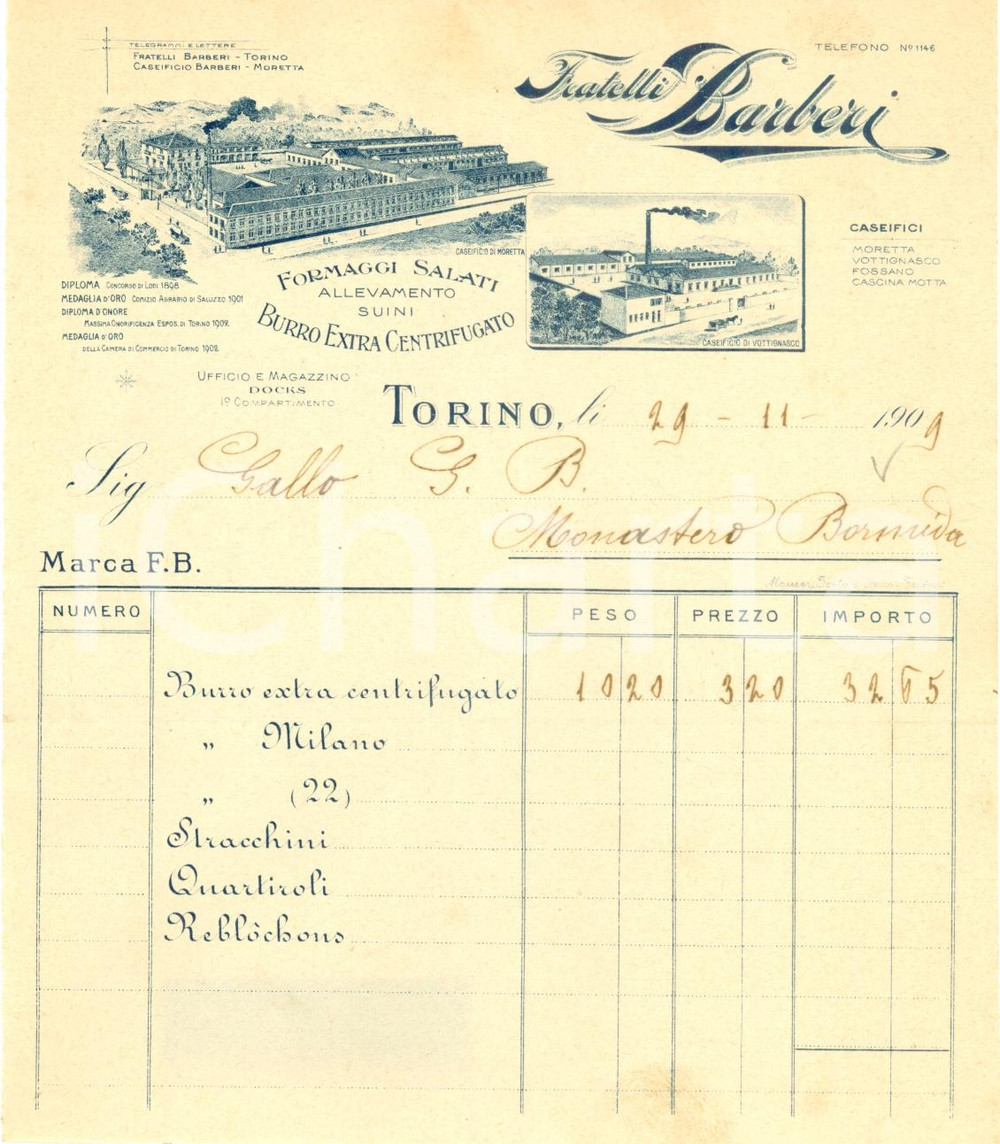 TELEGRAMMI E LETTERE
FRATELLI BARBERI - TORINO
CASEIFICIO BARBERI - MORETTA
TELEFONO Nº 1146
Fratelli Barberi
CASEIFICIO DI MORETTA
CASEIFICI
MORETTA
VOTTIGNASCO
FOSSANO
CASCINA MOTTA
DIPLOMA CONCORSO DI LODI 1898
MEDAGLIA D'ORO COMIZIO AGRARIO DI SALUZZO 1901
DIPLOMA D'ONORE
MASSIMA ONORIFICENZA ESPOS. DI TORINO 1902.
MEDAGLIA D'ORO
DELLA CAMERA DI COMMERCIO DI TORINO 1902.
FORMAGGI SALATI
ALLEVAMENTO
SUINI
BURRO EXTRA CENTRIFUGATO
CASEIFICIO DI VOTTIGNASCO
UFFICIO E MAGAZZINO
DOCKS
1º COMPARTIMENTO
TORINO, li 29 - 11 - 1909
Sig Gallo G. B.
Monastero Bormida
Marca F.B.
NUMERO PESO PREZZO IMPORTO
Burro extra centrifugato 10 20 3 20 32 65
„ Milano
„ (22)
Stracchini
Quartiroli
Reblôchons